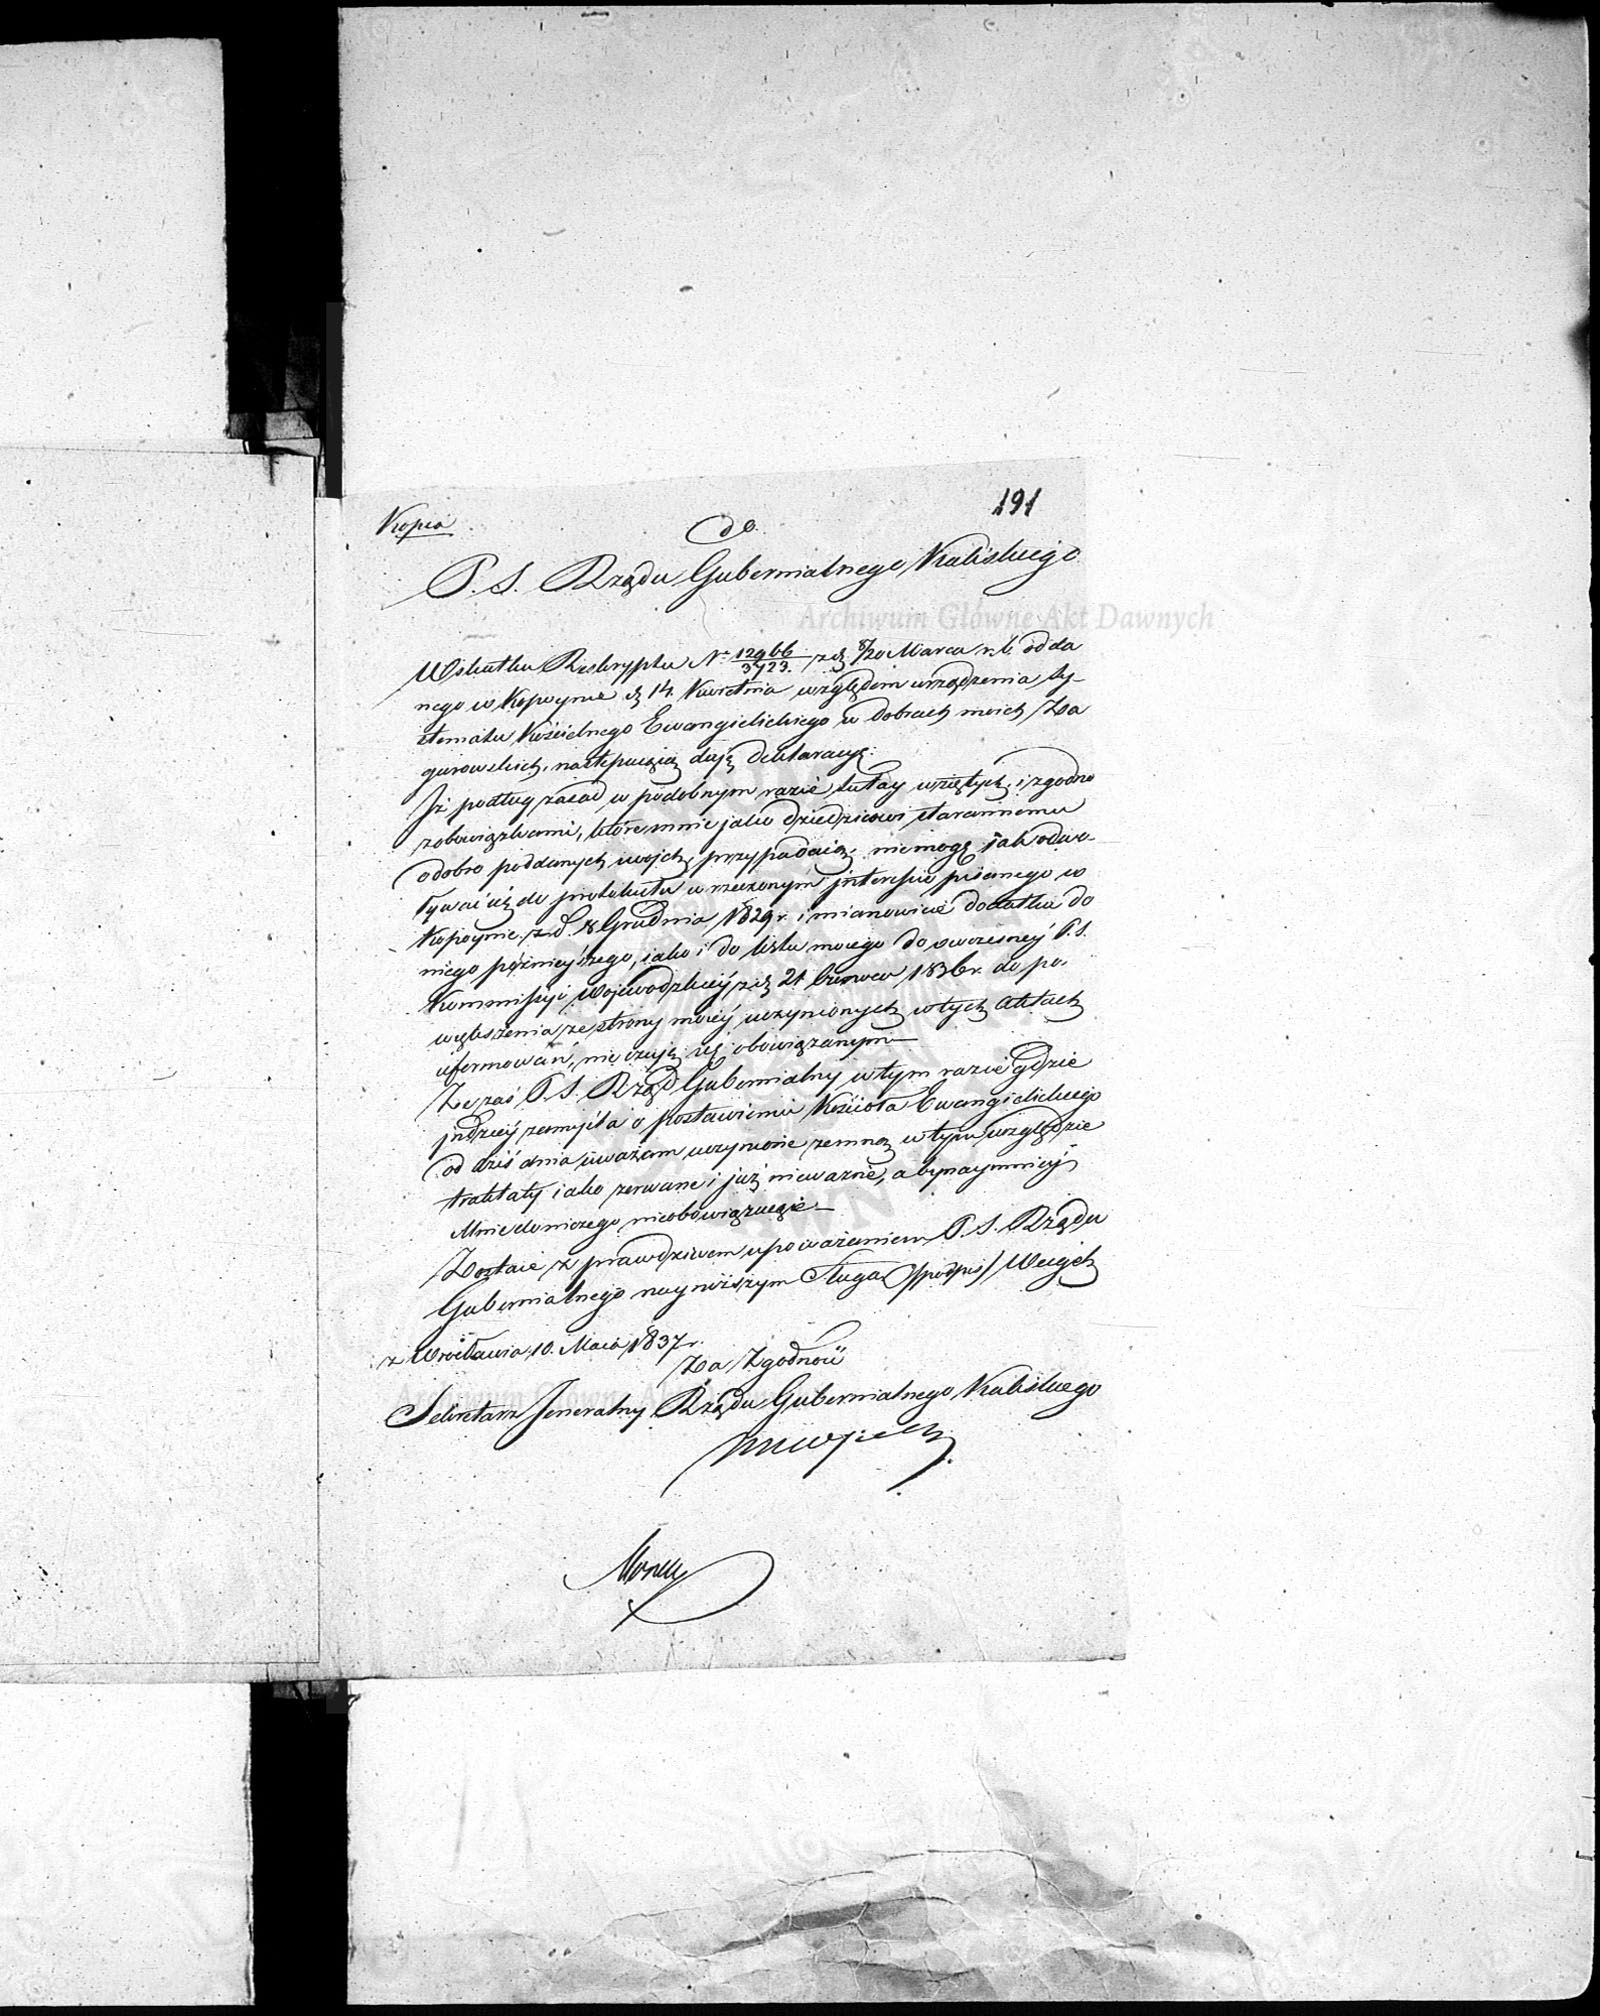 191
Kopia
do
P. S. Rządu Gubernialnego Kaliskiego
Archiwum Główne Akt Dawnych
W skutku Reskryptu Nr 12966/3723. z d. 8/20 Marca r. b. odda
nego w Kopoynie d. 14 Kwietnia względem urządzenia sy-
stematu Kościelnego Ewangielickiego w dobrach moich Za
gurowskich, następuiącą daję deklaracyę:
Iż podług zasad w podobnym razie tutay wziętych i zgodno
z obowiązkami, które mnie jako dziedzicowi starannemu
o dobro poddanych swoich przypadaią, niemogę jak odwo-
ływać się do protokułu w rzeczonym interesie pisanego w
Kopoynie z d. 8 Grudnia 1829 r. i mianowicie dodatku do
niego późnieyszego, iako i do listu moiego do owczesney P. S.
Kommissyi Wojewodzkiey z d. 21 Czerwca 1836 r. do po-
większenia ze strony moiey uczynionych w tych Aktach
ofiarowań, nie czuję się obowiązanym
Ze zaś P. S. Rząd Gubernialny w tym razie gdzie
indziey zamyśla o postawieniu Kościoła Ewangielickiego
od dziś dnia uważam uczynione zemną w tym względzie
traktaty iako zerwane i już nieważne, a bynaymniey
Mnie do niczego nieobowiązuiące
Zostaie z prawdziwem upoważeniem P. S. Rządu
Gubernialnego nayniższym Sługa (podpis) Weigel
z Wrocławia 10. Maia 1837 r.
Za Zgodność
Archiwum Główne Akt Dawnych
Sekretarz Jeneralny Rządu Gubernialnego Kaliskiego